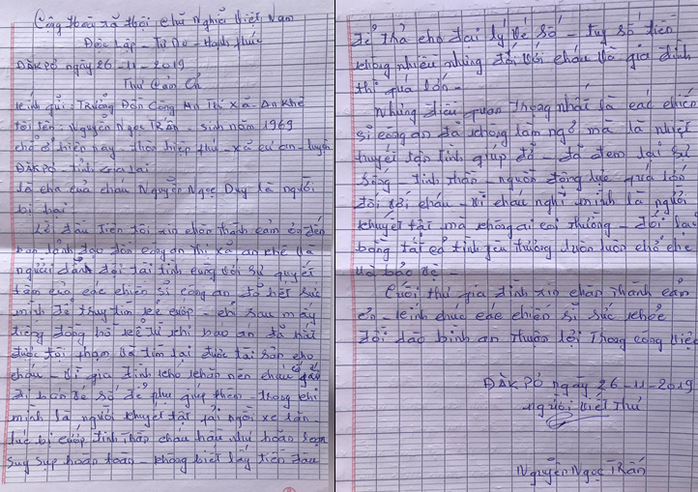 Cộng Hòa xã hội Chủ Nghĩa Việt Nam
Độc Lập - Tự Do - Hạnh phúc
ĐăkPơ ngày 26-11-2019
Thư Cảm Ơn
kính gửi: Trưởng Đồn Công An Thị xã - An Khê
tôi tên: Nguyễn Ngọc Trấn - Sinh năm 1969
chỗ ở hiện nay - thôn hiệp phú - xã cư an - huyện
ĐăkPơ - tỉnh gia lai
là cha của cháu Nguyễn Ngọc Duy là người
bị hại
Lời đầu tiên tôi xin chân thành cảm ơn đến
ban lãnh đạo đồn công an Thị xã an khê và
người dẫn đội tài tình cùng với sự quyết
tâm của các chiến sĩ công an đã hết sức
mình để truy tìm kẻ cướp - chỉ sau mấy
tiếng đồng hồ kể từ khi báo an đã bắt
được tội phạm và tìm lại được tài sản cho
cháu - Vì gia đình khó khăn nên cháu cố gắng
đi bán vé số để phụ giúp thêm - trong khi
mình là người khuyết tật phải ngồi xe lăn.
lúc bị cướp tinh thần cháu hầu như hoảng loạn
suy sụp hoàn toàn - không biết lấy tiền đâu
để trả cho đại lý vé số - tuy số tiền
không nhiều nhưng đối với cháu và gia đình
thì quá lớn -
Nhưng điều quan trọng nhất là các chiến
sĩ công an đã không làm ngơ mà là nhiệt
huyết tận tình giúp đỡ - đã đem lại sự
sống - tinh thần - nguồn động lực quá lớn
đối với cháu - Vì cháu nghĩ mình là người
khuyết tật mà không ai coi thường - đổi lại
bằng tất cả tình yêu thương luôn luôn chở che
và bảo vệ -
Cuối thư gia đình xin chân thành cảm
ơn - kính chúc các chiến sĩ sức khỏe
dồi dào bình an thuận lợi trong công việc
ĐăkPơ ngày 26-11-2019
người viết thư
Nguyễn Ngọc Trấn